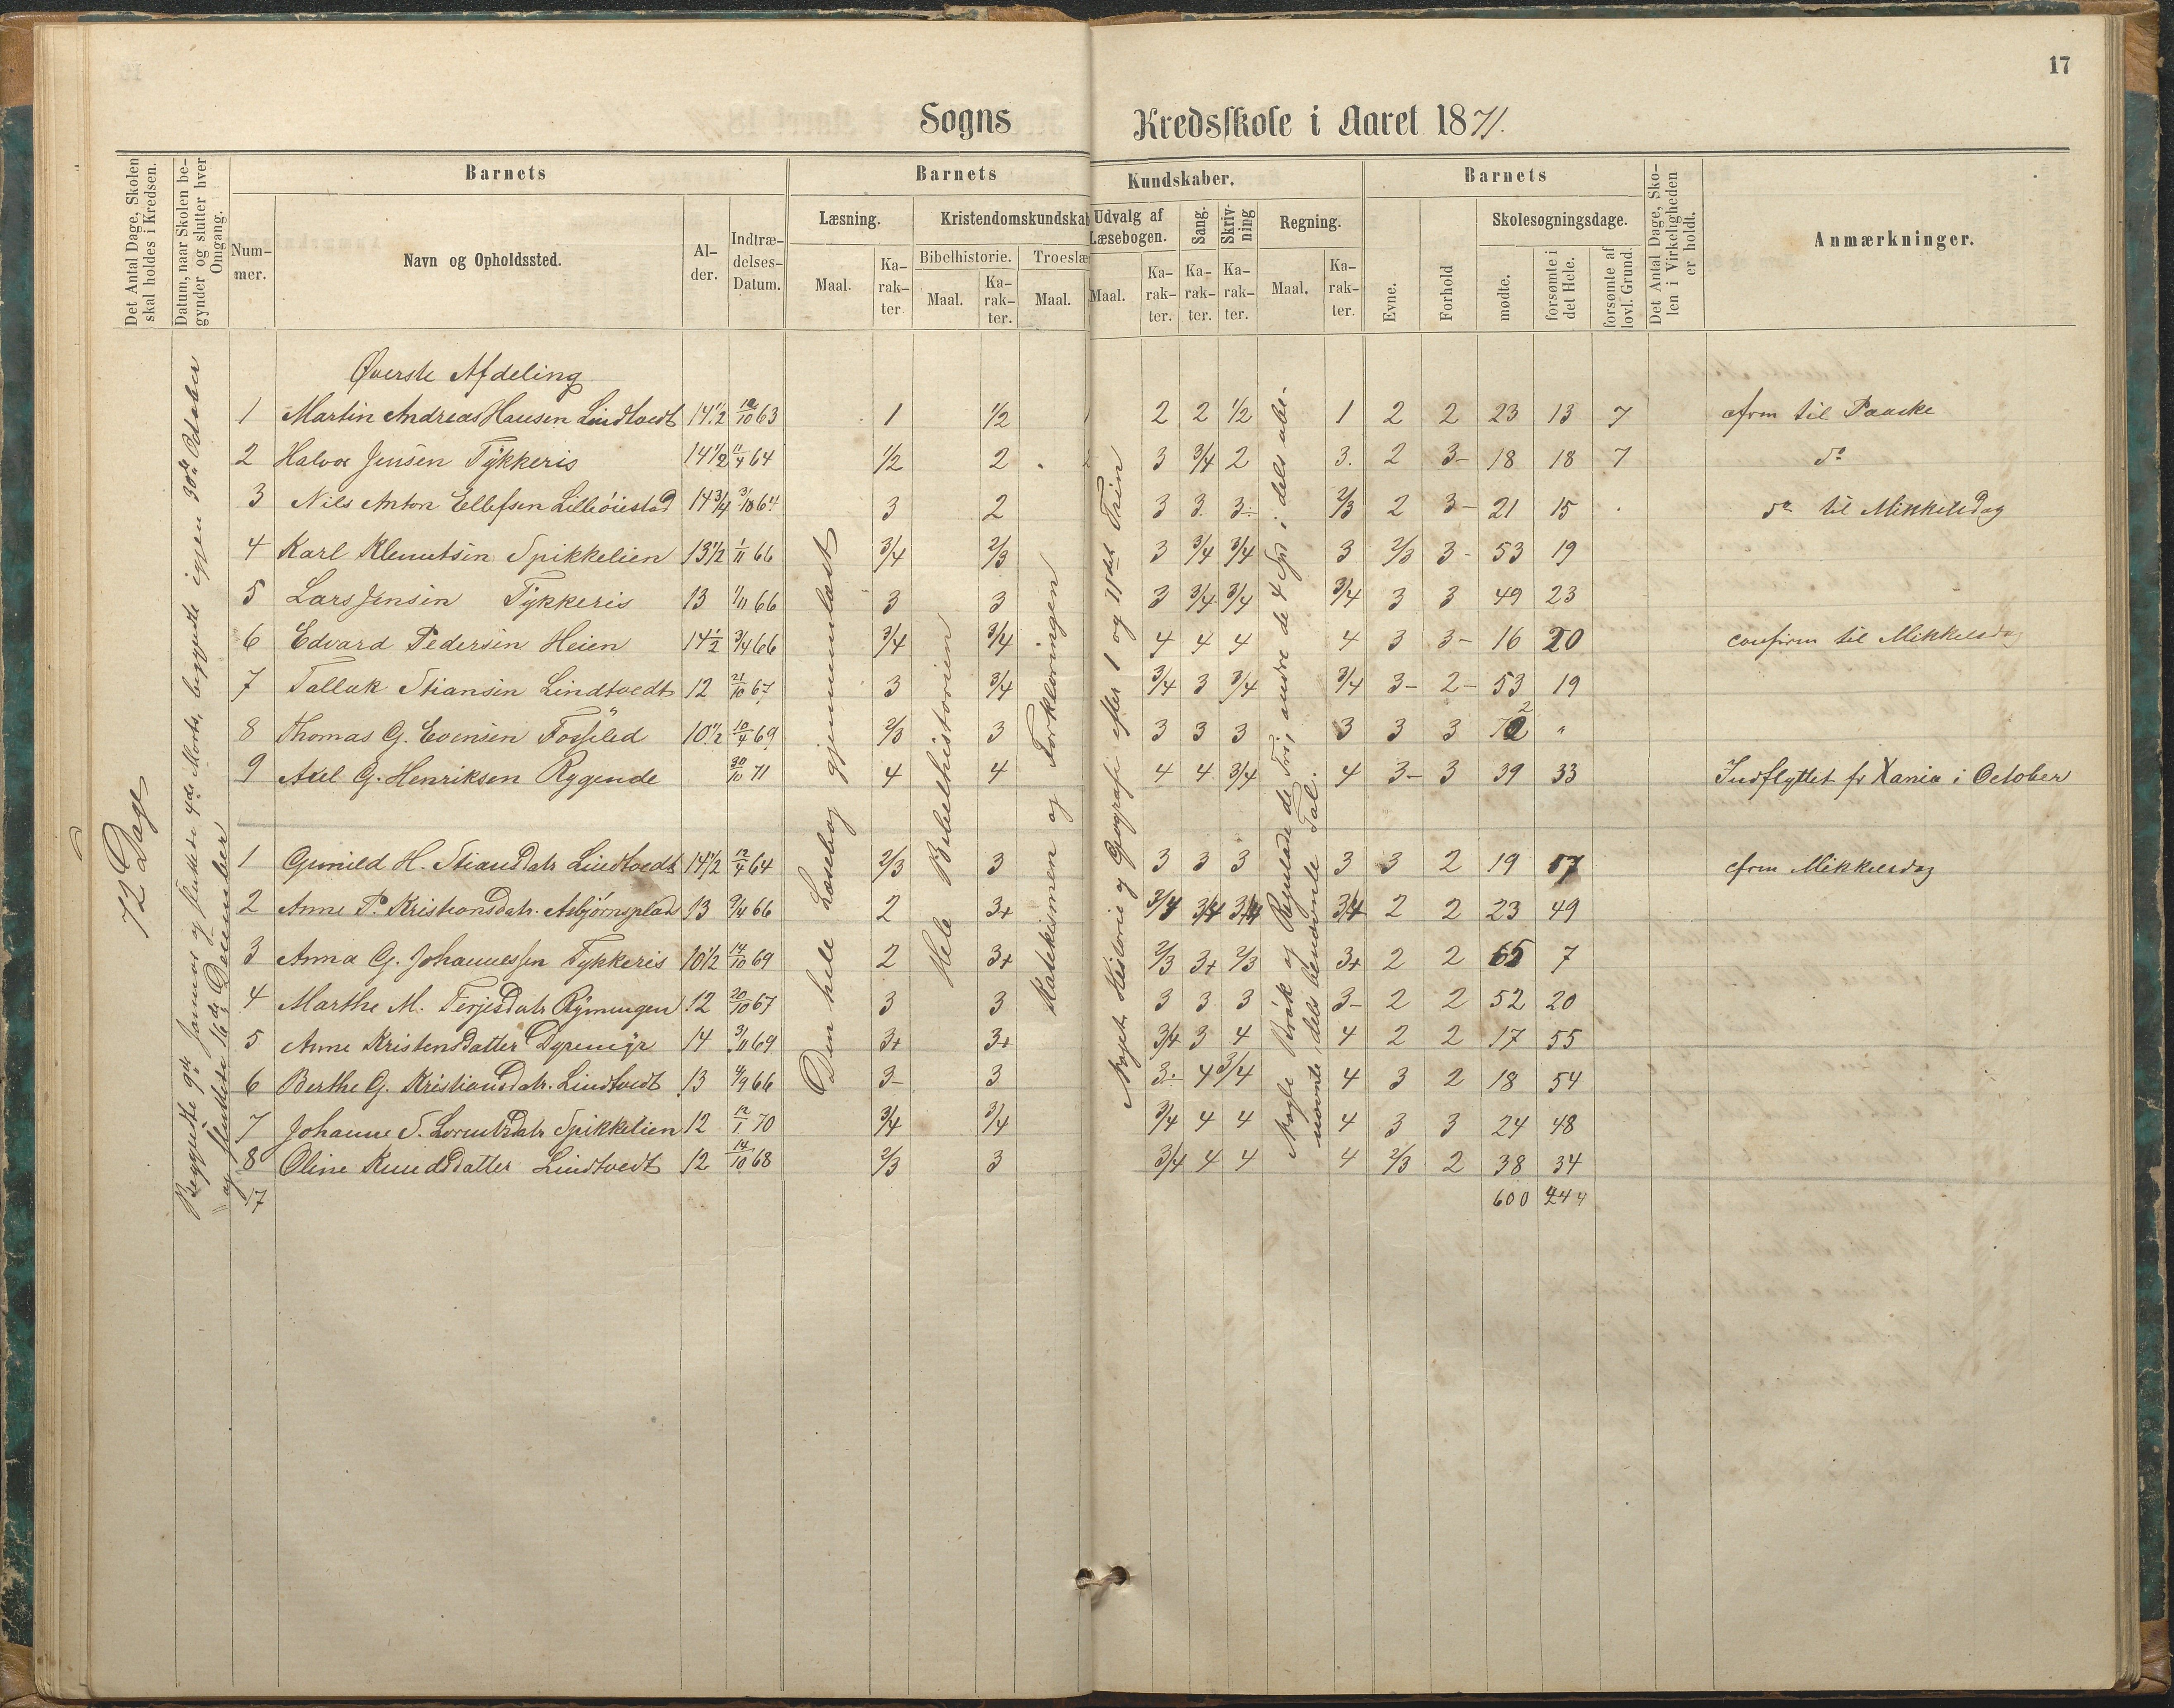 17
Sogns Kredsskole i Aaret 1871.
Det Antal Dage, Skolen skal holdes i Kredsen.
Datum, naar Skolen begynder og slutter hver Omgang.
Barnets
Nummer.
Navn og Opholdssted.
Alder.
Indtrædelses-Datum.
Barnets Kundskaber.
Læsning.
Maal.
Karakter
Kristendomskundskab
Bibelhistorie.
Maal.
Karakter.
Troeslæ
Maal.
Udvalg af Læsebogen.
Maal.
Karakter.
Sang.
Karakter.
Skrivning
Karakter.
Regning.
Maal.
Karakter.
Barnets
Evne.
Forhold
Skolesøgningsdage.
mødte.
forsømte i det Hele.
forsømte af lovl. Grund.
Det Antal Dage, Skolen i Virkeligheden er holdt.
Anmærkninger.
72 Dage
Begyndte 9de Januar og sluttede 4de Marts, begyndte igjen 30te October
og sluttede 16de December
Den hele Læsebog gjennemlæst
Hele Bibelhistorien
Katekismen og Forklaringen
Noget Historie og Geografi efter 1 og 11det Trin
Nogle Brøk og Regulade de Tri, andre de 4 Sp. i dels ube-
nævnte, dels benævnte Tal.
Øverste Afdeling
1 Martin Andreas Hansen Lindtvedt 14 1/2 10/10 63 1 1/2 2 2 1/2 1 2 2 23 13 7 cfrm til Paaske
2 Halvor Jensen Tykkeris 14 1/2 11/4 64 1/2 2 3 3/4 2 3. 2 3- 18 18 7 do
3 Nils Anton Ellefsen Lilleøiestad 14 3/4 3/10 64 3 2 3 3 3- 2/3 2 3- 21 15 do til Mikkelsdag
4 Karl Klemetsen Spikkelien 13 1/2 1/11 66 3/4 2/3 3 3/4 3/4 3 2/3 3- 53 19
5 Lars Jensen Tykkeris 13 1/11 66 3 3 3 3/4 3/4 3/4 3 3 49 23
6 Edvard Pedersen Heien 14 1/2 3/4 66 3/4 3/4 4 4 4 4 3 3- 16 20 confirm til Mikkelsdag
7 Tallak Stiansen Lindtvedt 12 21/10 67 3 3/4 3/4 3 3/4 3/4 3- 2- 53 19
8 Thomas G. Evensen Fosseled 10 1/2 10/4 69 2/3 3 3 3 3 3 3 3 72 "
9 Axel G. Henriksen Rygende 30/10 71 4 4 4 4 3/4 4 3- 3 39 33 Indflyttet fr Xania i October
1 Gunild H. Stiansdatr Lindtvedt 14 1/2 12/4 64 2/3 3 3 3 3 3 3 2 19 17 cfrm Mikkelsdag
2 Anne P. Kristiansdatr. Asbjørnsplads 13 9/4 66 2 3+ 3/4 3/4 3/4 3/4 2 2 23 49
3 Anna G. Johannessen Tykkeris 10 1/2 14/10 69 2 3+ 2/3 3+ 2/3 3+ 2 2 65 7
4 Marthe M. Terjesdatr Rymyngen 12 20/10 67 3 3 3 3 3 3- 2 2 52 20
5 Anne Kristensdatter Dyremyr 14 3/11 69 3+ 3+ 3/4 3 4 4 2 2 17 55
6 Berthe G. Kristiansdatr. Lindtvedt 13 4/9 66 3- 3 3- 4 3/4 4 3 2 18 54
7 Johanne S. Lorentzdatr Spikkelien 12 12/1 70 3/4 3/4 3/4 4 4 4 3 3 24 48
8 Oline Knudsdatter Lindtvedt 12 14/10 68 2/3 3 3/4 4 4 4 2/3 2 38 34
17 600 444